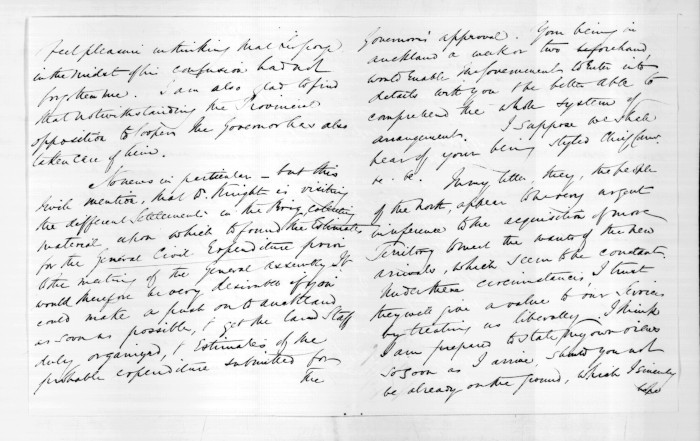 feel pleasure in thinking that
in the midst of his confusion had not
forgotten me. I am also glad to find
that notwithstanding the Provincial
opposition to Cooper the Governor has also
taken care of him.
No news in particular - but this
I will mention, that Dr. Knight is visiting
the different Settlements in the Brig, collecting
material upon which to found the Estimates
for the General Civil Expenditure prior
to the meeting of the General Assembly. It
would therefore be very desirable if you
could make a push on to Auckland
as soon as possible, & get the Land Staff
duly organized, & Estimates of the
probable expenditure submitted for
the
Governor's approval. Your being in
Auckland a week or two beforehand
would enable the Government to enter into
details with you & be better able to
comprehend the whole system of
arrangement. I suppose we shall
hear of your being styled Chief Comr.
&c. &c. In my letter, they, the people
of the North, appear to be very urgent
in reference to the acquisition of more
Territory to meet the wants of the new
arrivals, which seem to be constant.
Under these circumstances, I trust
they will give a value to our services
by treating us liberally. I think
I am prepared to state my own views
so soon as I arrive, should you not
be already on the ground, which I sincerely
hope